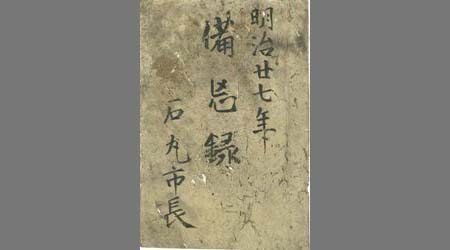 明治廿七年
備忘録
石丸市長